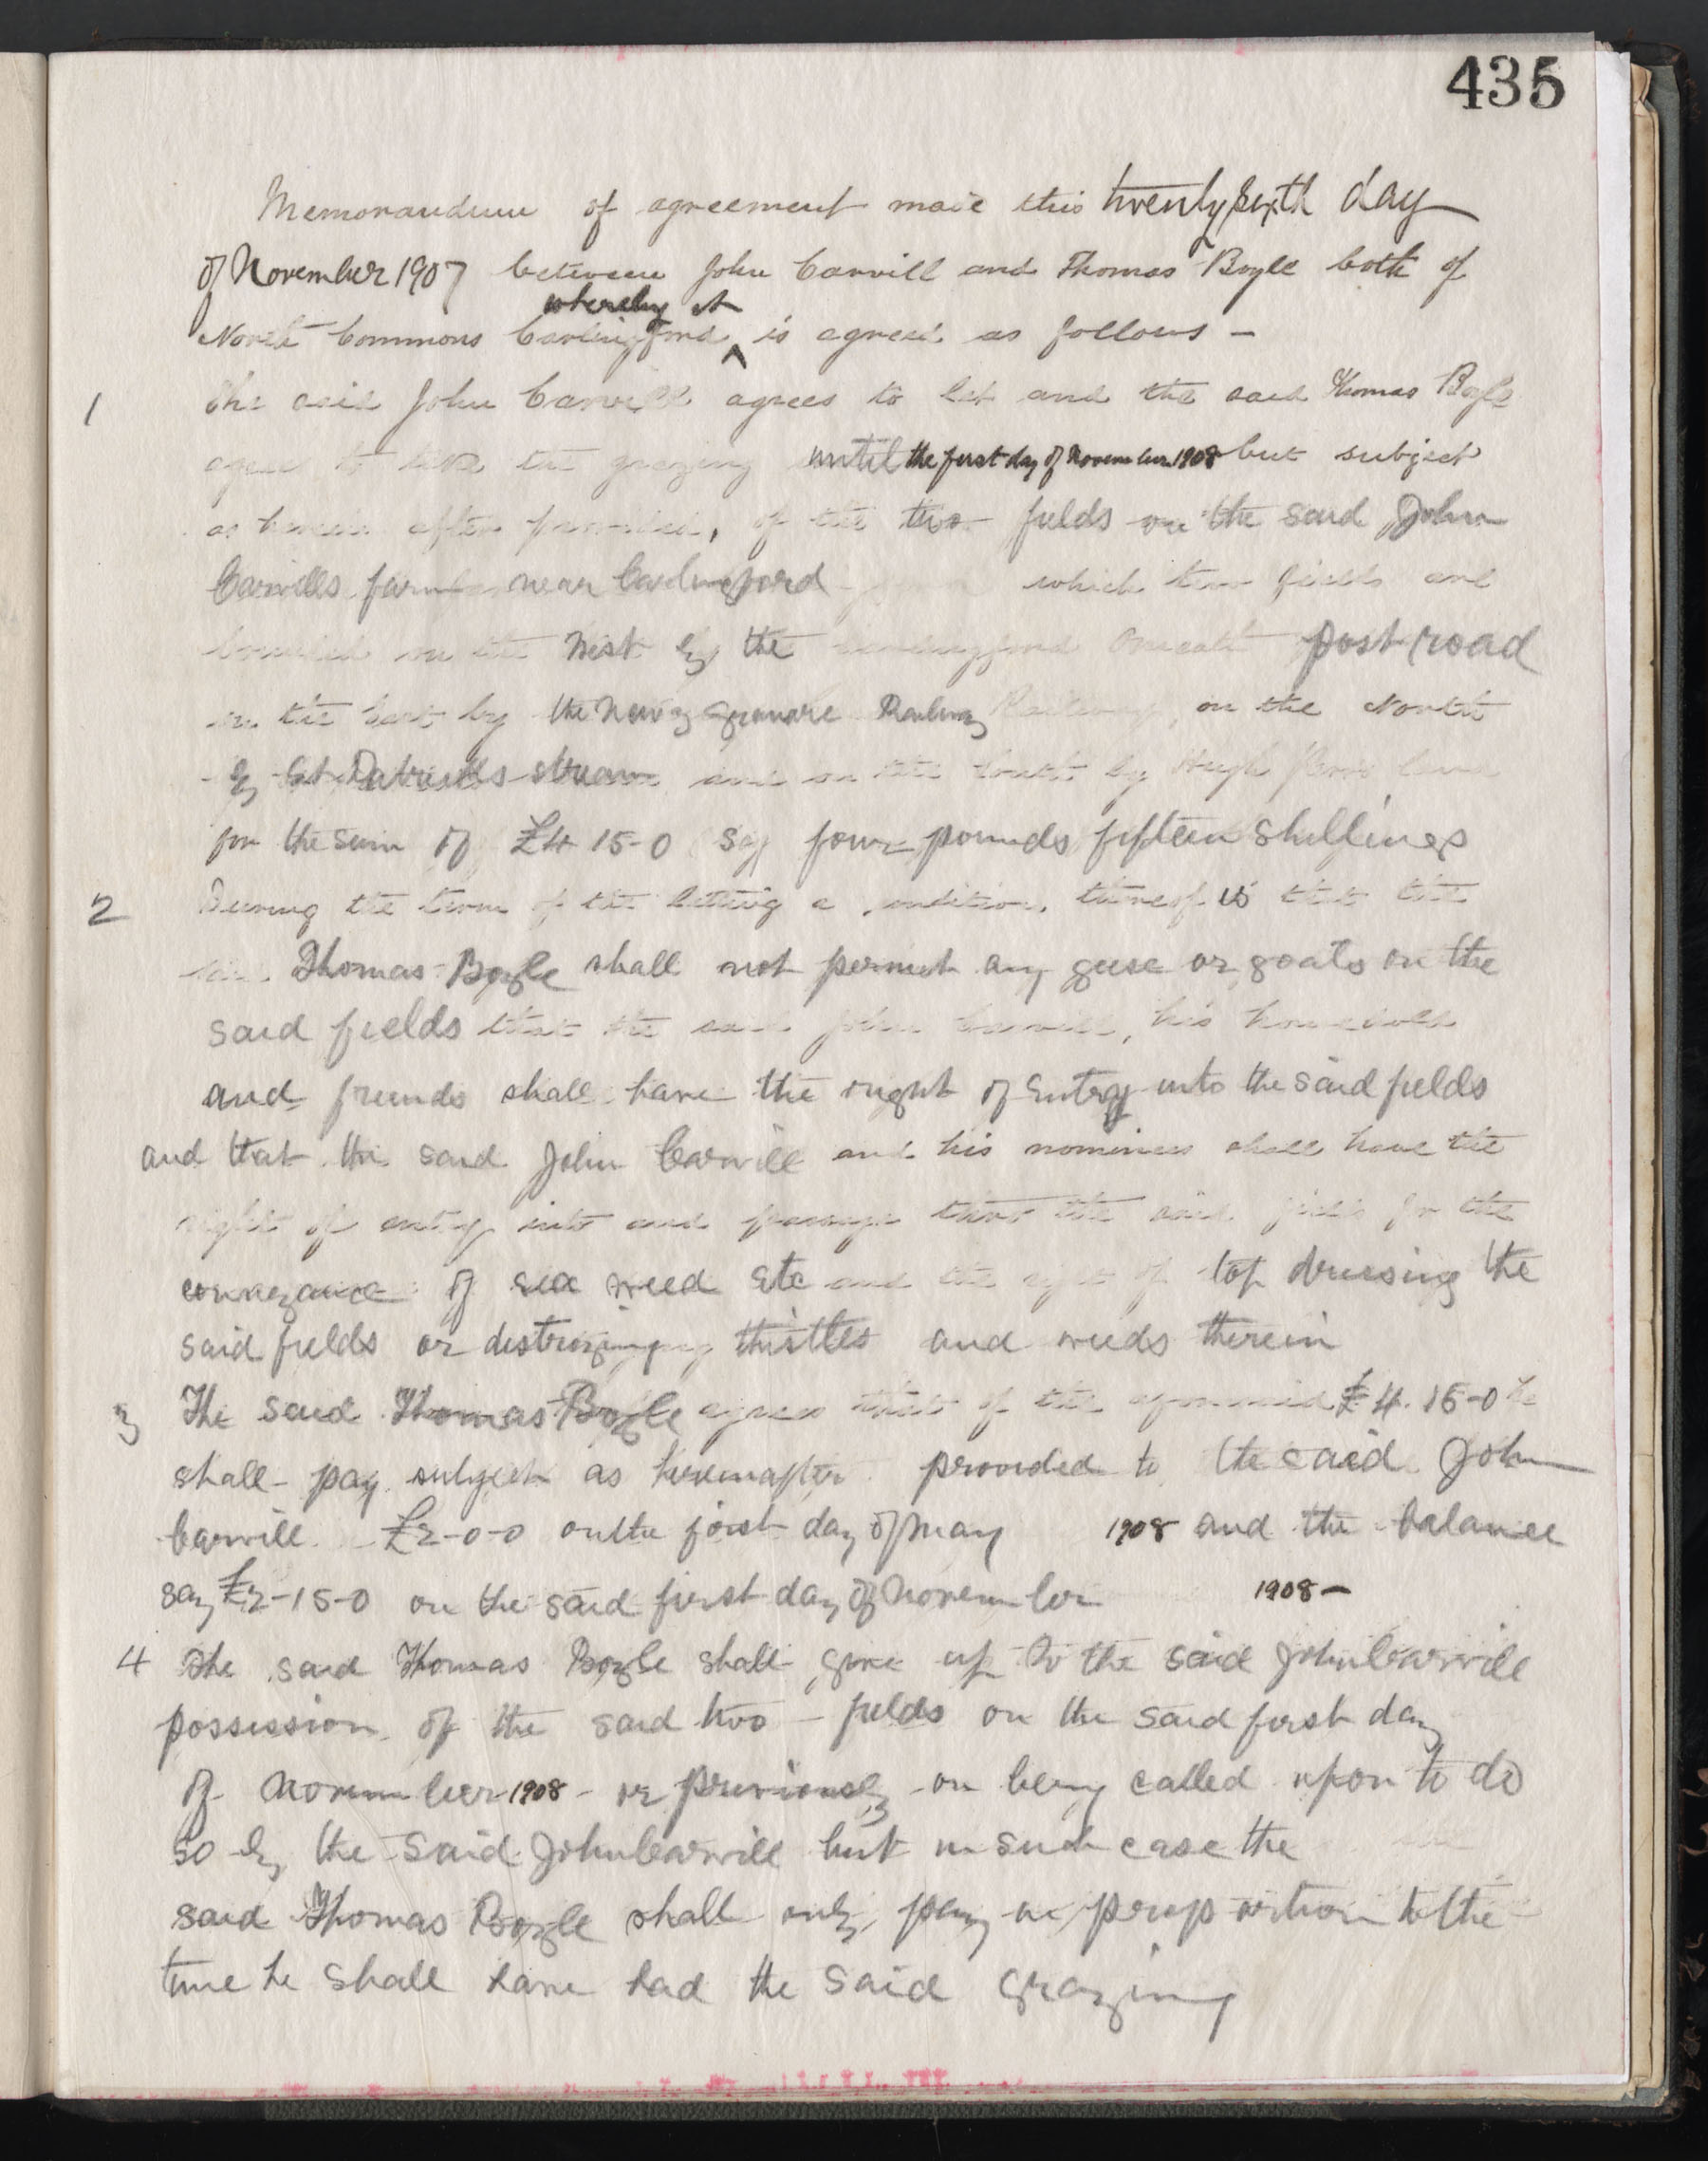 435
Memorandum of agreement made this twenty sixth day
of November 1907 between John Carvill and Thomas Boyle both of
whereby it
North Commons Carlingford ^ is agreed as follows –
1 The said John Carvill agrees to let and the said Thomas Boyle
agrees to take the grazing until the first day of November 1908 but subject
as herein after provided, of the two fields on the said John
Carvills farm near Carlingford which two fields are
bounded on the West by the Carlingford Omeath post road
on the East by the Newry Greenore Railway Railway, on the North
by St Patricks stream and on the South by Hugh land
for the sum of £4 15-0 say four pounds fifteen shillings
2 During the term of the letting a condition thereof is that the
said Thomas Boyle shall not permit any geese or goats on the
said fields that the said John Carvill, his household
and friends shall have the right of Entry into the said fields
and that the said John Carvill and his nominees shall have the
right of entry into and passage thro the said fields for the
conveyance of sea weed etc and the right of top dressing the
said fields or destroying thistles and weeds therein
3 The said Thomas Boyle agrees that of the aforesaid £4.15-0 he
shall pay subject as hereinafter provided to the said John
Carvill £2-0-0 on the first day of May 1908 and the balance
say £2-15-0 on the said first day of November 1908 –
4 The said Thomas Boyle shall give up to the said John Carvill
possession of the said two – fields on the said first day
of November 1908 – or previously on being called upon to do
so by the said John Carvill but in such case the
said Thomas Boyle shall only pay in proportion to the
time he shall have had the said grazing